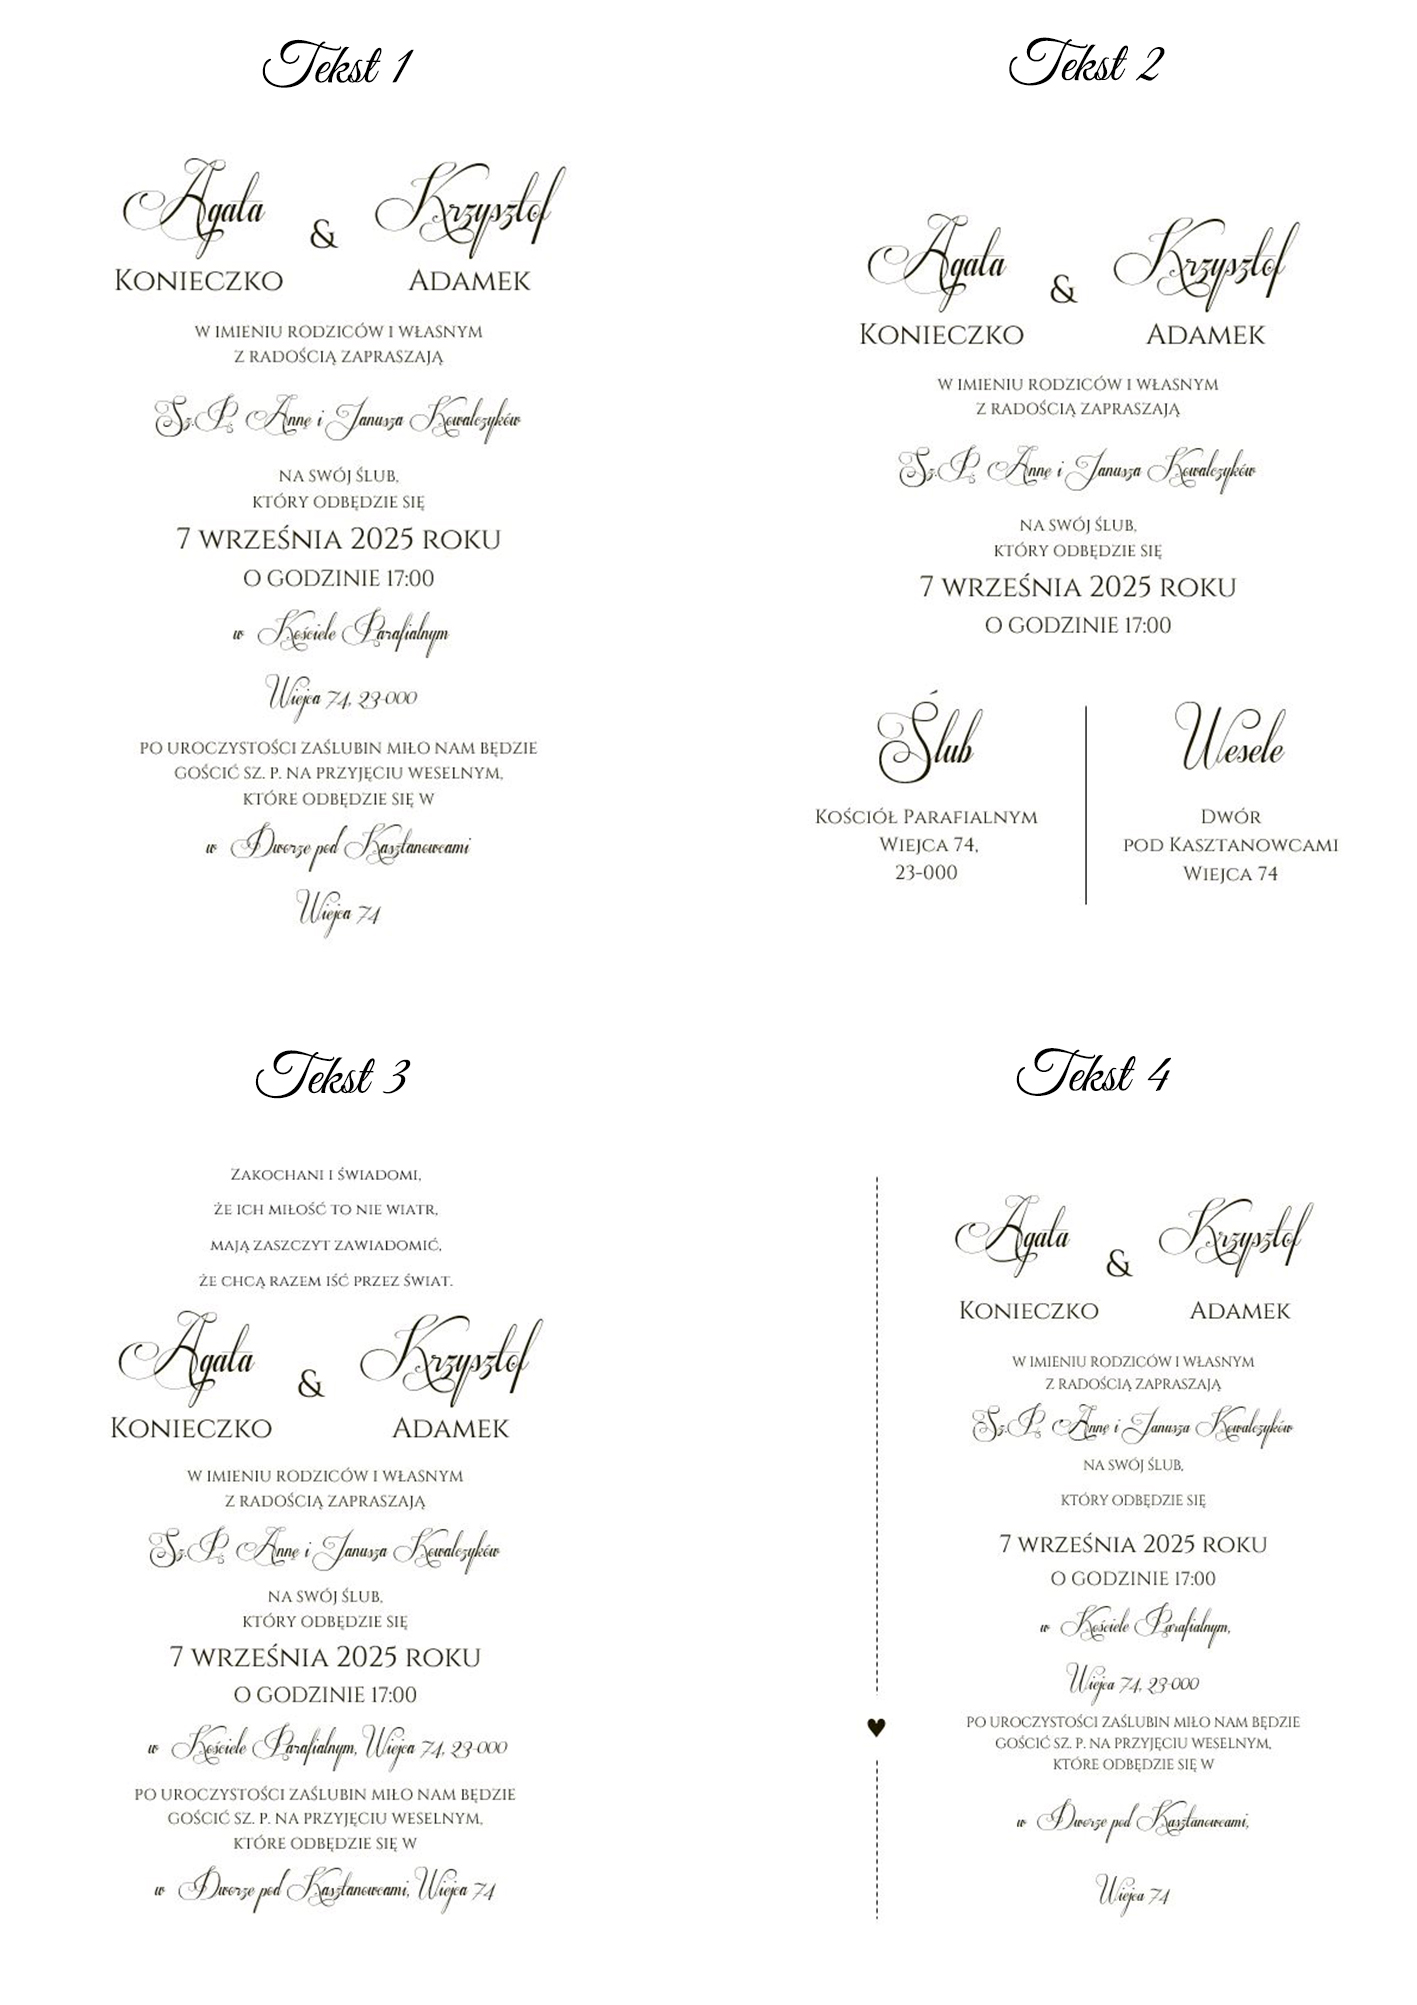 Tekst 1
Agata & Krzysztof
KONIECZKO ADAMEK
W IMIENIU RODZICÓW I WŁASNYM
Z RADOŚCIĄ ZAPRASZAJĄ
Sz.P. Annę i Janusza Kowalczyków
NA SWÓJ ŚLUB,
KTÓRY ODBĘDZIE SIĘ
7 WRZEŚNIA 2025 ROKU
O GODZINIE 17:00
w Kościele Parafialnym
Wiejca 74, 23-000
PO UROCZYSTOŚCI ZAŚLUBIN MIŁO NAM BĘDZIE
GOŚCIĆ SZ. P. NA PRZYJĘCIU WESELNYM,
KTÓRE ODBĘDZIE SIĘ W
w Dworze pod Kasztanowcami
Wiejca 74
Tekst 2
Agata & Krzysztof
KONIECZKO ADAMEK
W IMIENIU RODZICÓW I WŁASNYM
Z RADOŚCIĄ ZAPRASZAJĄ
Sz.P. Annę i Janusza Kowalczyków
NA SWÓJ ŚLUB,
KTÓRY ODBĘDZIE SIĘ
7 WRZEŚNIA 2025 ROKU
O GODZINIE 17:00
Ślub
KOŚCIÓŁ PARAFIALNYM
WIEJCA 74,
23-000
Wesele
DWÓR
POD KASZTANOWCAMI
WIEJCA 74
Tekst 3
ZAKOCHANI I ŚWIADOMI,
ŻE ICH MIŁOŚĆ TO NIE WIATR,
MAJĄ ZASZCZYT ZAWIADOMIĆ,
ŻE CHCĄ RAZEM IŚĆ PRZEZ ŚWIAT.
Agata & Krzysztof
KONIECZKO ADAMEK
W IMIENIU RODZICÓW I WŁASNYM
Z RADOŚCIĄ ZAPRASZAJĄ
Sz.P. Annę i Janusza Kowalczyków
NA SWÓJ ŚLUB,
KTÓRY ODBĘDZIE SIĘ
7 WRZEŚNIA 2025 ROKU
O GODZINIE 17:00
w Kościele Parafialnym, Wiejca 74, 23-000
PO UROCZYSTOŚCI ZAŚLUBIN MIŁO NAM BĘDZIE
GOŚCIĆ SZ. P. NA PRZYJĘCIU WESELNYM,
KTÓRE ODBĘDZIE SIĘ W
w Dworze pod Kasztanowcami, Wiejca 74
Tekst 4
Agata & Krzysztof
KONIECZKO ADAMEK
W IMIENIU RODZICÓW I WŁASNYM
Z RADOŚCIĄ ZAPRASZAJĄ
Sz.P. Annę i Janusza Kowalczyków
NA SWÓJ ŚLUB,
KTÓRY ODBĘDZIE SIĘ
7 WRZEŚNIA 2025 ROKU
O GODZINIE 17:00
w Kościele Parafialnym,
Wiejca 74, 23-000
PO UROCZYSTOŚCI ZAŚLUBIN MIŁO NAM BĘDZIE
GOŚCIĆ SZ. P. NA PRZYJĘCIU WESELNYM,
KTÓRE ODBĘDZIE SIĘ W
w Dworze pod Kasztanowcami,
Wiejca 74